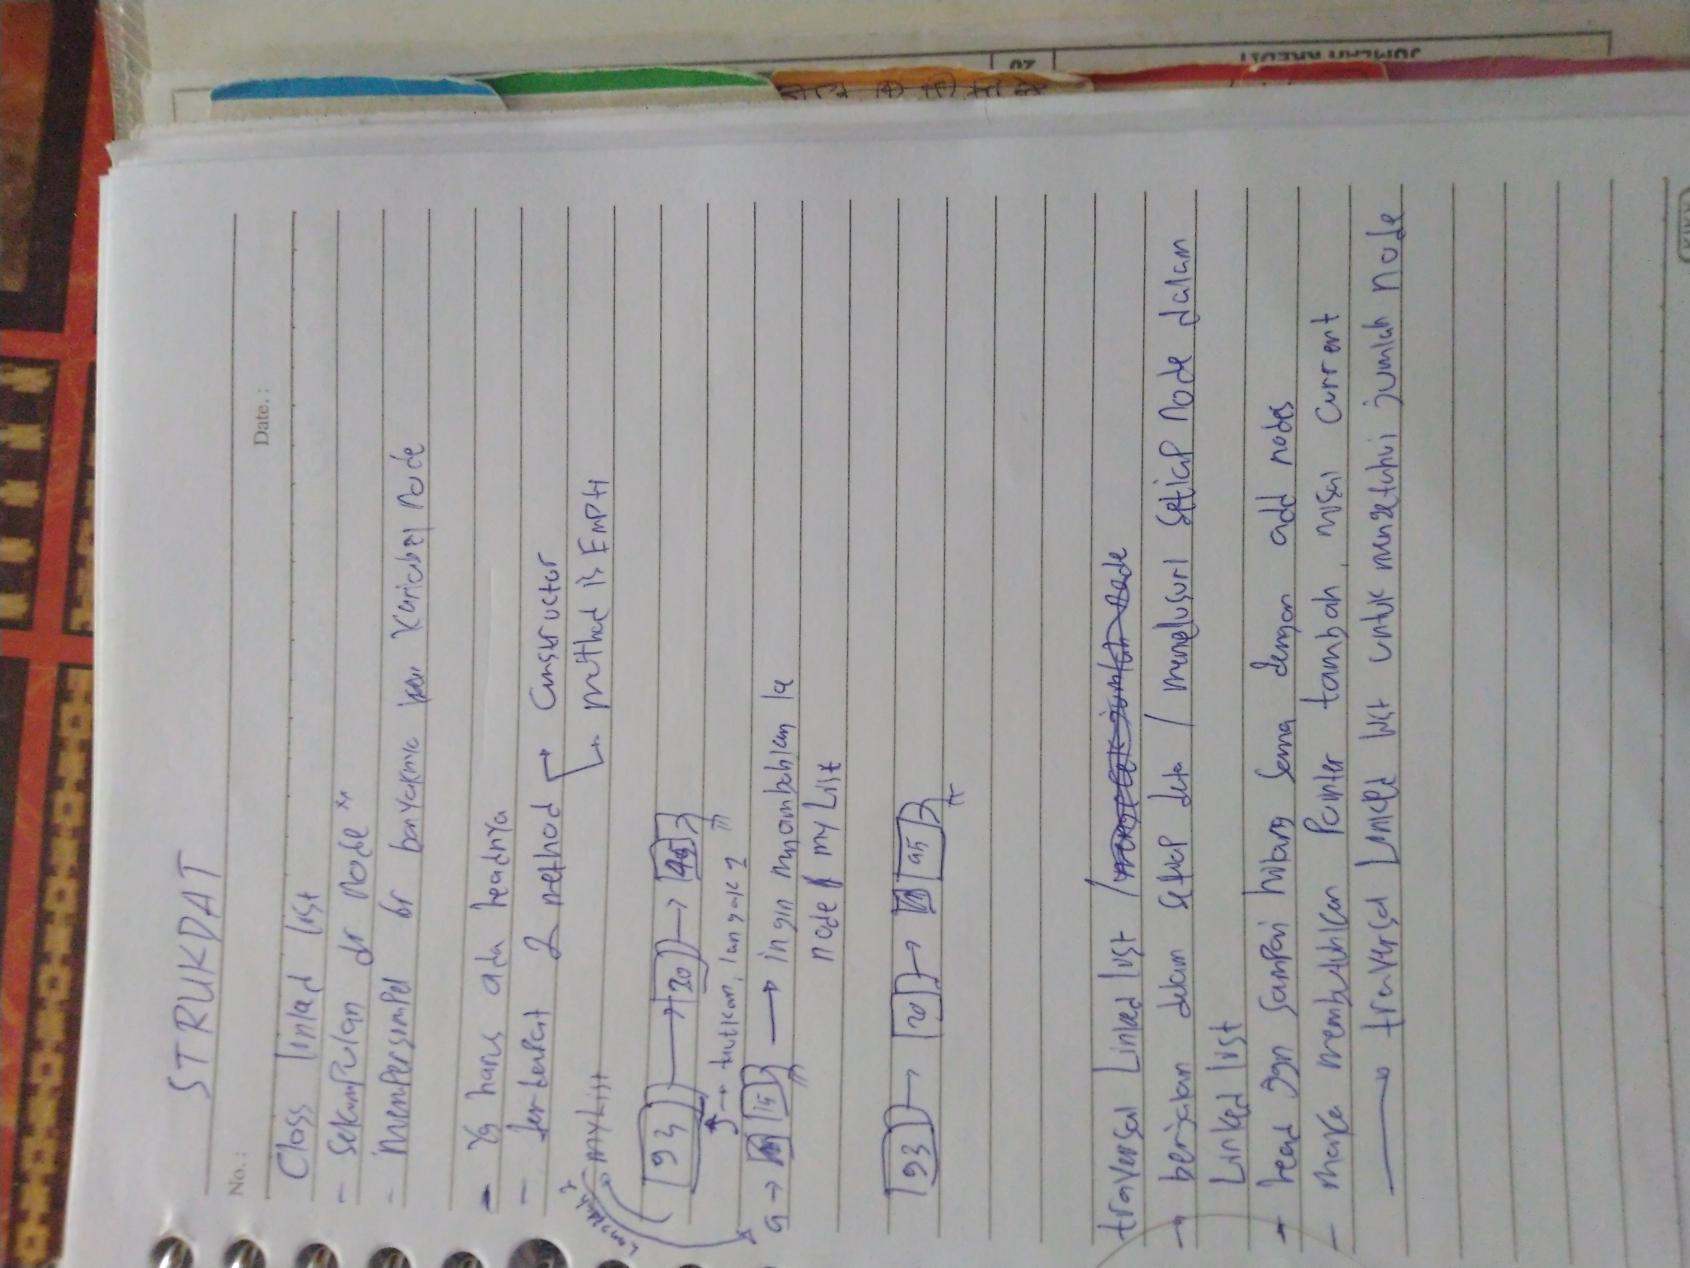 STRUKDAT
No.:
Date.:
Class linked list
- sekumpulan dr node"
- mempersimpel dr banyaknya variabel node
- yg harus ada headnya
- terdapat 2 method → Constructor
↳ method is Empty
myList
93 → 20 → 45
→ tautkan, langkah 2
a → 15 → ingin menambahkan ke
node myList
93 → 20 → 95
traversal Linked list /
→ berjalan dalam setiap data / menelusuri setiap node dalam
Linked list
→ head jgn sampai hilang sama dengan add nodes
- maka membutuhkan pointer tambah, misal current
→ traversal Linked list untuk mengetahui jumlah node
JUMLAH KREDIT
20